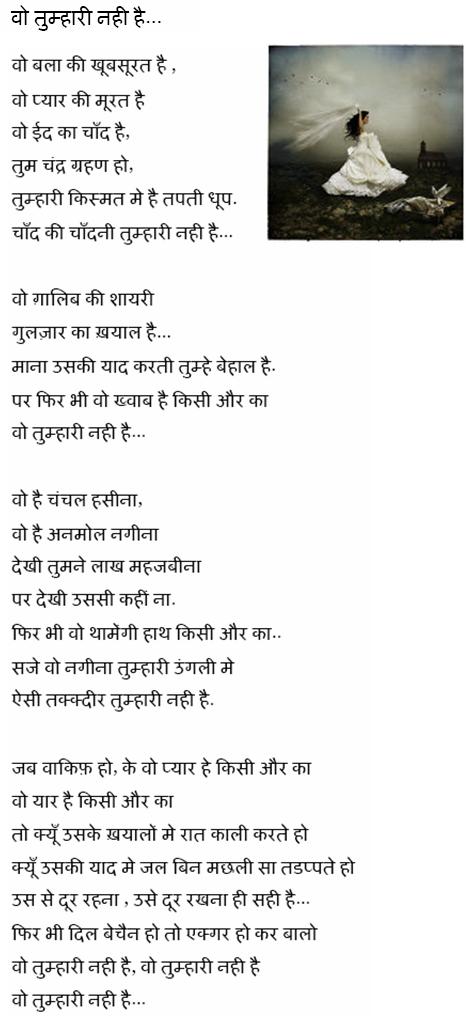 वो तुम्हारी नही है...
वो बला की खूबसूरत है ,
वो प्यार की मूरत है
वो ईद का चाँद है,
तुम चंद्र ग्रहण हो,
तुम्हारी किस्मत मे है तपती धूप.
चाँद की चाँदनी तुम्हारी नही है...
वो ग़ालिब की शायरी
गुलज़ार का ख़याल है...
माना उसकी याद करती तुम्हे बेहाल है.
पर फिर भी वो ख्वाब है किसी और का
वो तुम्हारी नही है...
वो है चंचल हसीना,
वो है अनमोल नगीना
देखी तुमने लाख महजबीना
पर देखी उससी कहीं ना.
फिर भी वो थामेंगी हाथ किसी और का..
सजे वो नगीना तुम्हारी उंगली मे
ऐसी तक्क्दीर तुम्हारी नही है.
जब वाकिफ़ हो, के वो प्यार हे किसी और का
वो यार है किसी और का
तो क्यूँ उसके ख़यालों मे रात काली करते हो
क्यूँ उसकी याद मे जल बिन मछली सा तडप्पते हो
उस से दूर रहना , उसे दूर रखना ही सही है...
फिर भी दिल बेचैन हो तो एक्गर हो कर बालो
वो तुम्हारी नही है, वो तुम्हारी नही है
वो तुम्हारी नही है...